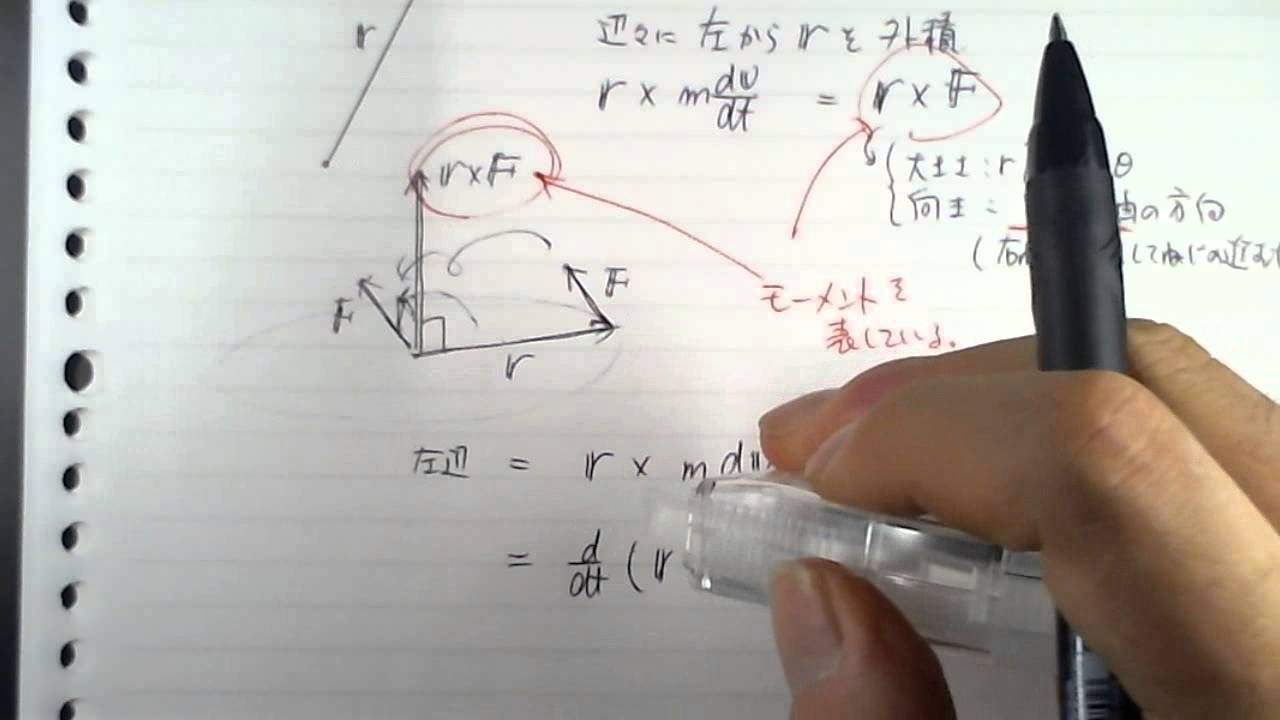 r
辺々に左からrを外積
r × m dv/dt = r × F
大きさ：r θ
向き： の方向
r×F
F
F
r
モーメントを
表している。
左辺 = r × m dv
= d/dt (r